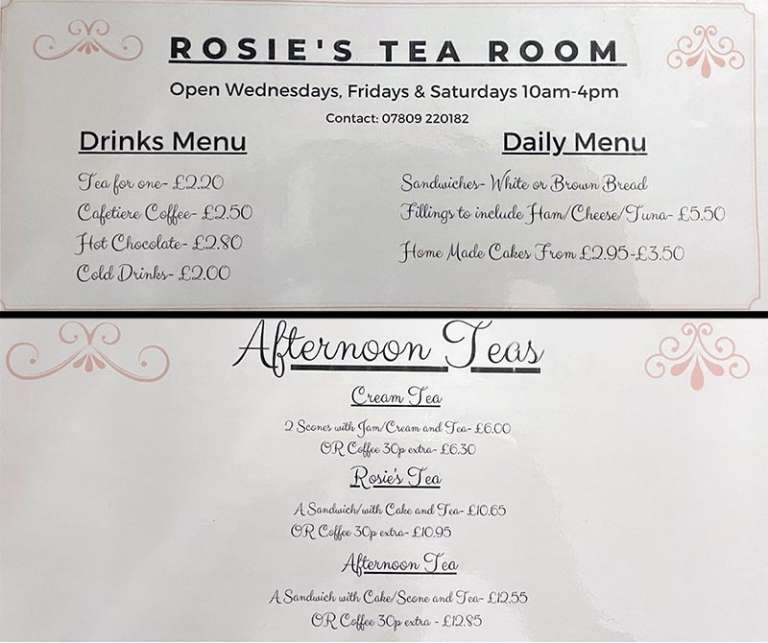 ROSIE'S TEA ROOM
Open Wednesdays, Fridays & Saturdays 10am-4pm
Contact: 07809 220182
Drinks Menu
Tea for one- £2.20
Cafetiere Coffee- £2.50
Hot Chocolate- £2.80
Cold Drinks- £2.00
Daily Menu
Sandwiches- White or Brown Bread
Fillings to include Ham/Cheese/Tuna- £5.50
Home Made Cakes From £2.95-£3.50
Afternoon Teas
Cream Tea
2 Scones with Jam/Cream and Tea- £6.00
OR Coffee 30p extra- £6.30
Rosie's Tea
A Sandwich/with Cake and Tea- £10.65
OR Coffee 30p extra- £10.95
Afternoon Tea
A Sandwich with Cake/Scone and Tea- £12.55
OR Coffee 30p extra - £12.85